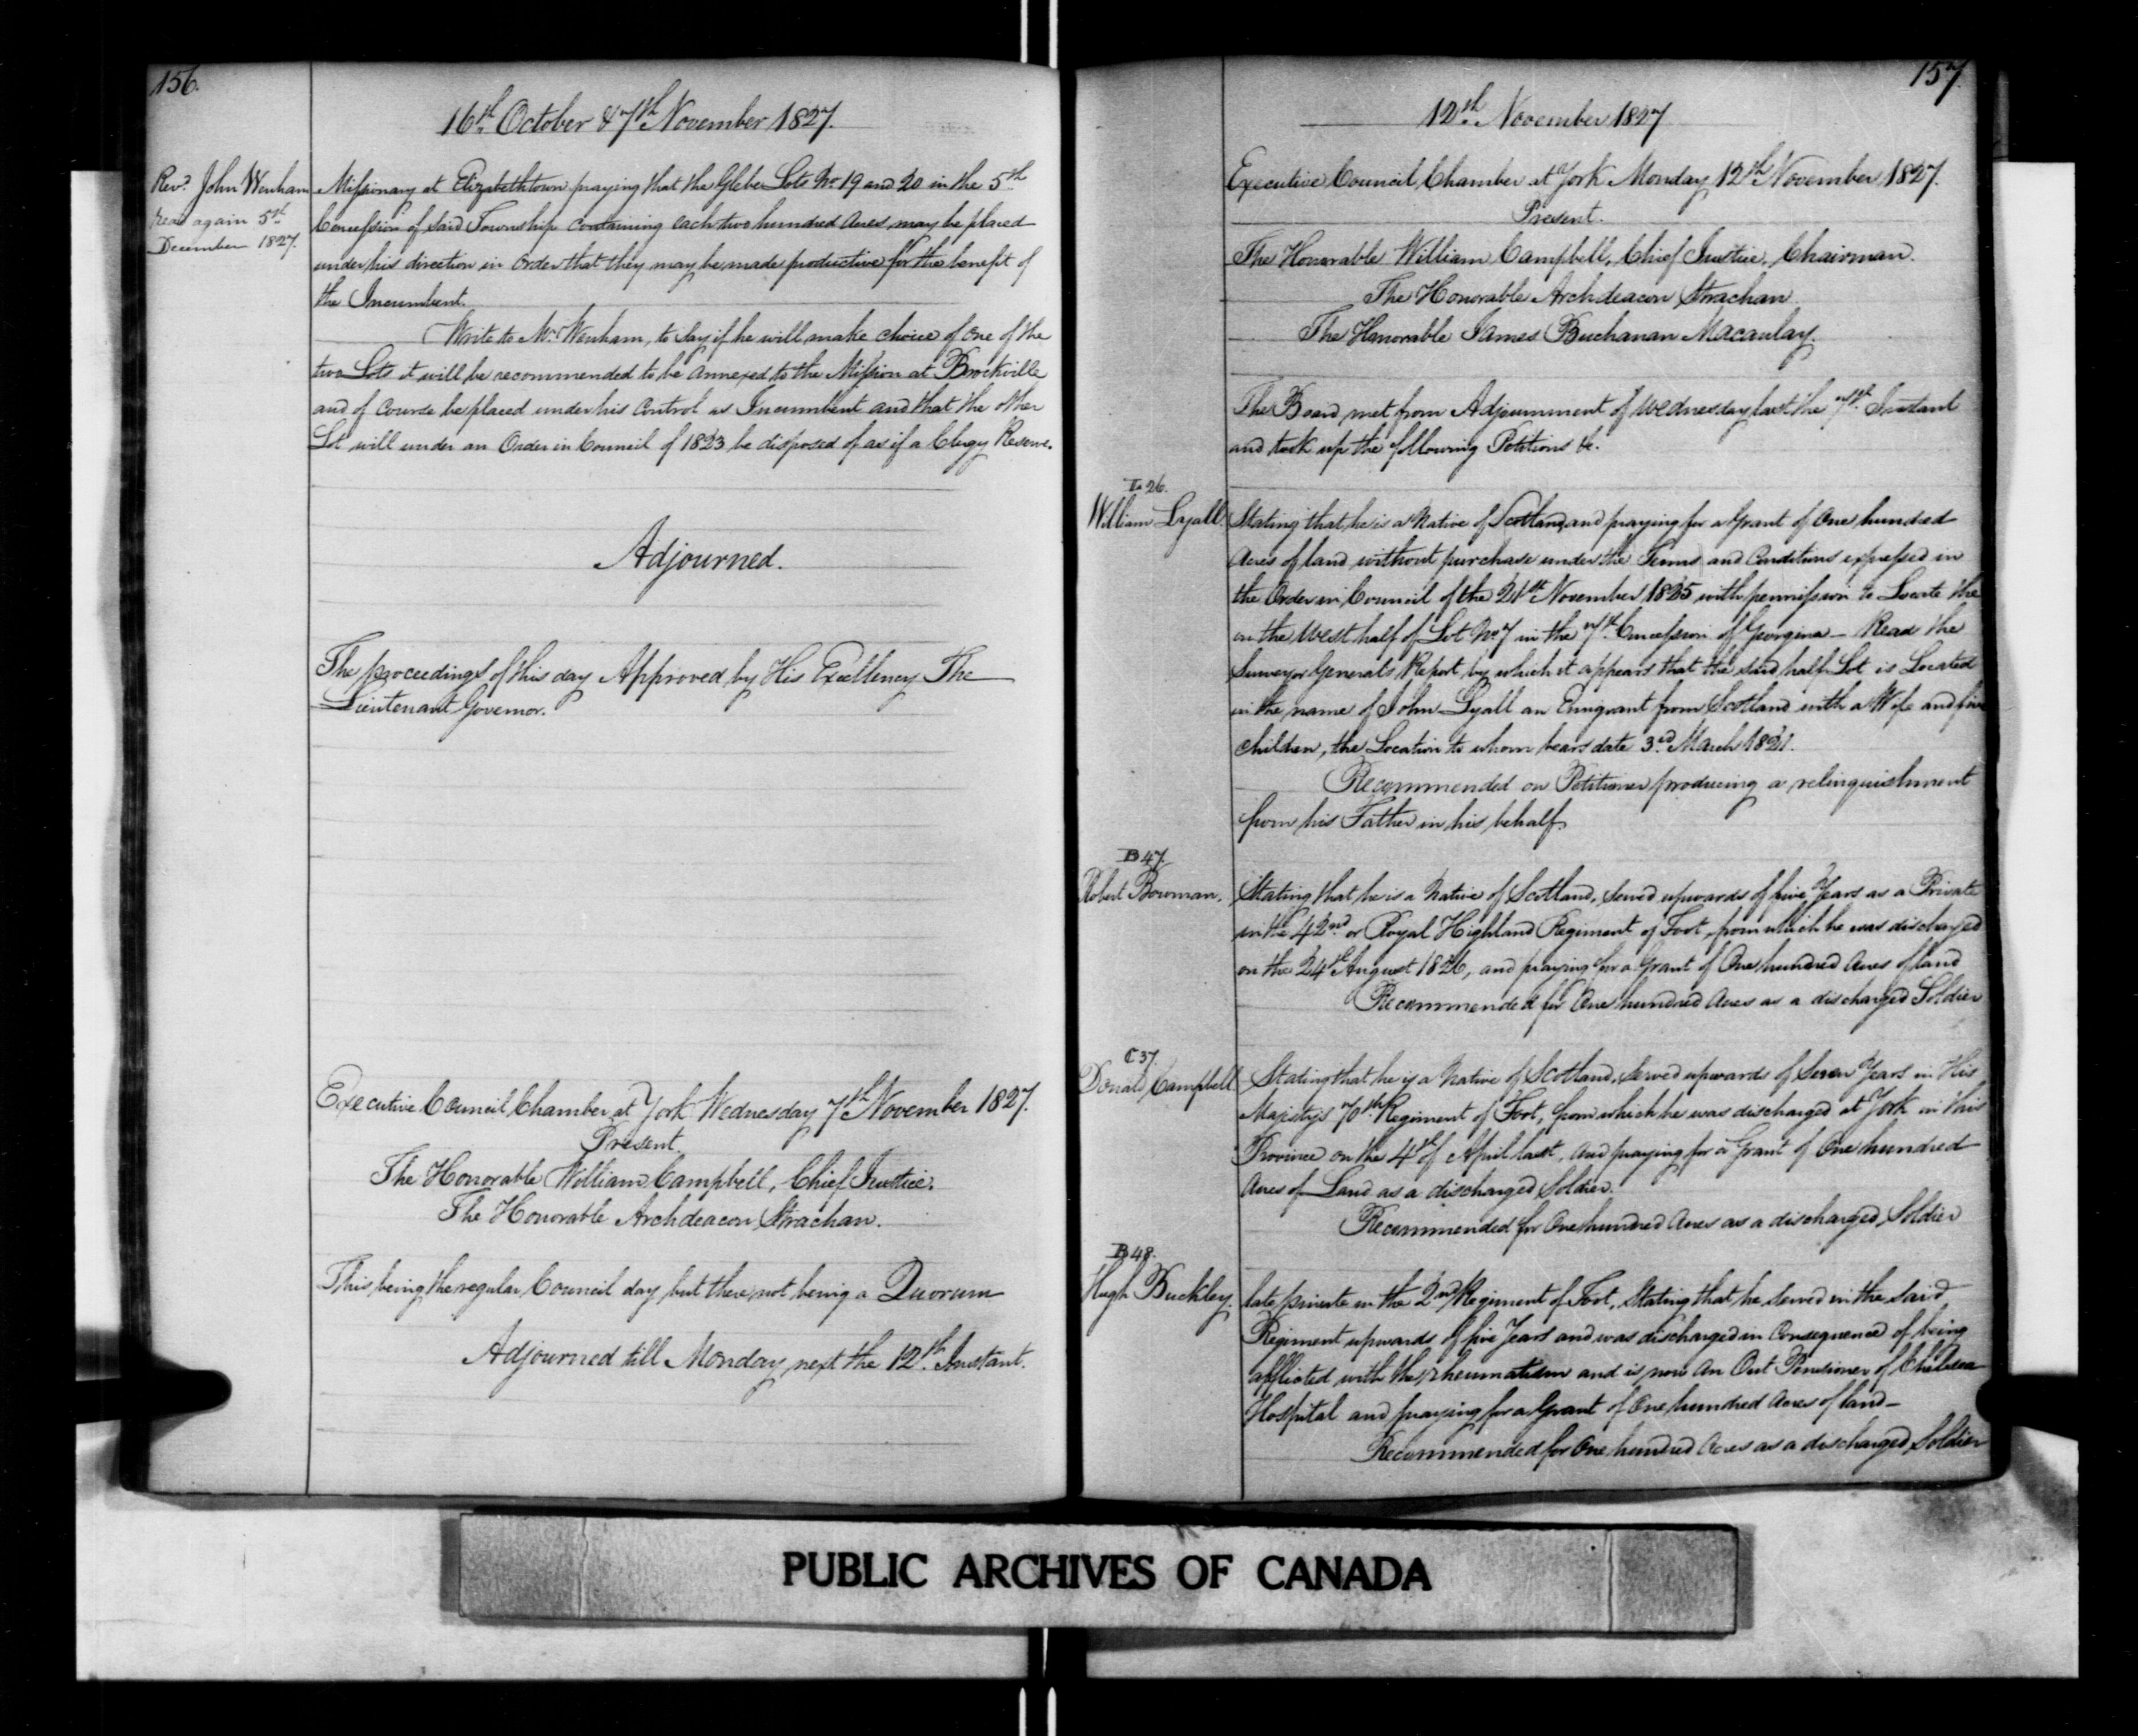 156.
16th October & 7th November 1827.
Revd. John Wenham
read again 5th
December 1827.
Missionary at Elizabethtown praying that the Glebe Lots No 19 and 20 in the 5th
Concession of said Township containing each two hundred Acres may be placed
under his direction in Order that they may be made productive for the benefit of
the Incumbent.
Write to Mr Wenham, to say if he will make choice of one of the
two Lots it will be recommended to be annexed to the Mission at Brockville
and of Course be placed under his Control as Incumbent and that the other
Lot will under an Order in Council of 1823 be disposed of as if a Clergy Reserve.
Adjourned.
The proceedings of this day Approved by His Excellency The
Lieutenant Governor.
Executive Council Chamber at York Wednesday 7th November 1827.
Present.
The Honorable William Campbell, Chief Justice.
The Honorable Archdeacon Strachan.
This being the regular Council day but there not being a Quorum
Adjourned till Monday next the 12th Instant.
157
12th November 1827
Executive Council Chamber at York Monday 12th November 1827.
Present.
The Honorable William Campbell, Chief Justice, Chairman.
The Honorable Archdeacon Strachan
The Honorable James Buchanan Macaulay.
The Board met from Adjournment of Wednesday last the 7th Instant
and took up the following Petitions &c.
L 26.
William Lyall.
Stating that he is a Native of Scotland, and praying for a Grant of One hundred
Acres of land without purchase under the Terms and Conditions expressed in
the Order in Council of the 21st November 1825 with permission to Locate the
on the West half of Lot No 7 in the 7th Concession of Georgina — Read the
Surveyor Generals Report by which it appears that the said half Lot is Located
in the name of John Lyall an Emigrant from Scotland with a Wife and five
Children, the Location to whom bears date 3rd March 1821.
Recommended on Petitioner producing a relinquishment
from his Father in his behalf.
B 47.
Robert Bowman.
Stating that he is a Native of Scotland, served upwards of five Years as a Private
in the 42nd or Royal Highland Regiment of Foot, from which he was discharged
on the 24th August 1826, and praying for a Grant of One hundred Acres of land
Recommended for One hundred Acres as a discharged Soldier
C 37.
Donald Campbell
Stating that he is a Native of Scotland, served upwards of Seven Years in His
Majesty's 70th Regiment of Foot, from which he was discharged at York in this
Province on the 4th of April last, and praying for a Grant of One hundred
Acres of Land as a discharged Soldier.
Recommended for One hundred Acres as a discharged Soldier
B 48.
Hugh Buckley.
late private in the 2nd Regiment of Foot, Stating that he served in the said
Regiment upwards of five Years and was discharged in Consequence of being
afflicted with the rheumatism and is now an Out Pensioner of Chelsea
Hospital and praying for a Grant of One hundred Acres of land —
Recommended for One hundred Acres as a discharged Soldier
PUBLIC ARCHIVES OF CANADA